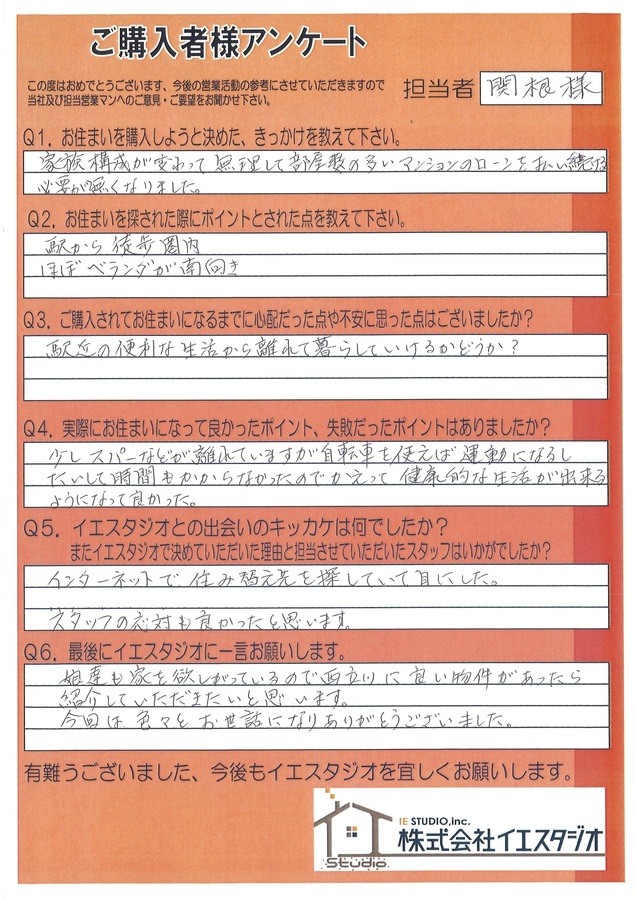 ご購入者様アンケート
この度はおめでとうございます、今後の営業活動の参考にさせていただきますので
当社及び担当営業マンへのご意見・ご要望をお聞かせ下さい。
担当者 関根様
Q1. お住まいを購入しようと決めた、きっかけを教えて下さい。
家族構成が変わって無理して部屋数の多いマンションのローンを払い続ける
必要が無くなりました。
Q2. お住まいを探された際にポイントとされた点を教えて下さい。
駅から徒歩圏内
ほぼベランダが南向き
Q3. ご購入されてお住まいになるまでに心配だった点や不安に思った点はございましたか?
駅近の便利な生活から離れて暮らしていけるかどうか?
Q4. 実際にお住まいになって良かったポイント、失敗だったポイントはありましたか?
少しスパーなどが離れていますが自転車を使えば運動になるし
たいして時間もかからなかったのでかえって健康的な生活が出来る
ようになって良かった。
Q5. イエスタジオとの出会いのキッカケは何でしたか?
またイエスタジオで決めていただいた理由と担当させていただいたスタッフはいかがでしたか?
インターネットで住み替え先を探していて目にした。
スタッフの応対も良かったと思います。
Q6. 最後にイエスタジオに一言お願いします。
娘達も家を欲しがっているので西立川に良い物件があったら
紹介していただきたいと思います。
今回は色々とお世話になりありがとうございました。
有難うございました、今後もイエスタジオを宜しくお願いします。
IE STUDIO,inc.
株式会社イエスタジオ
Studio